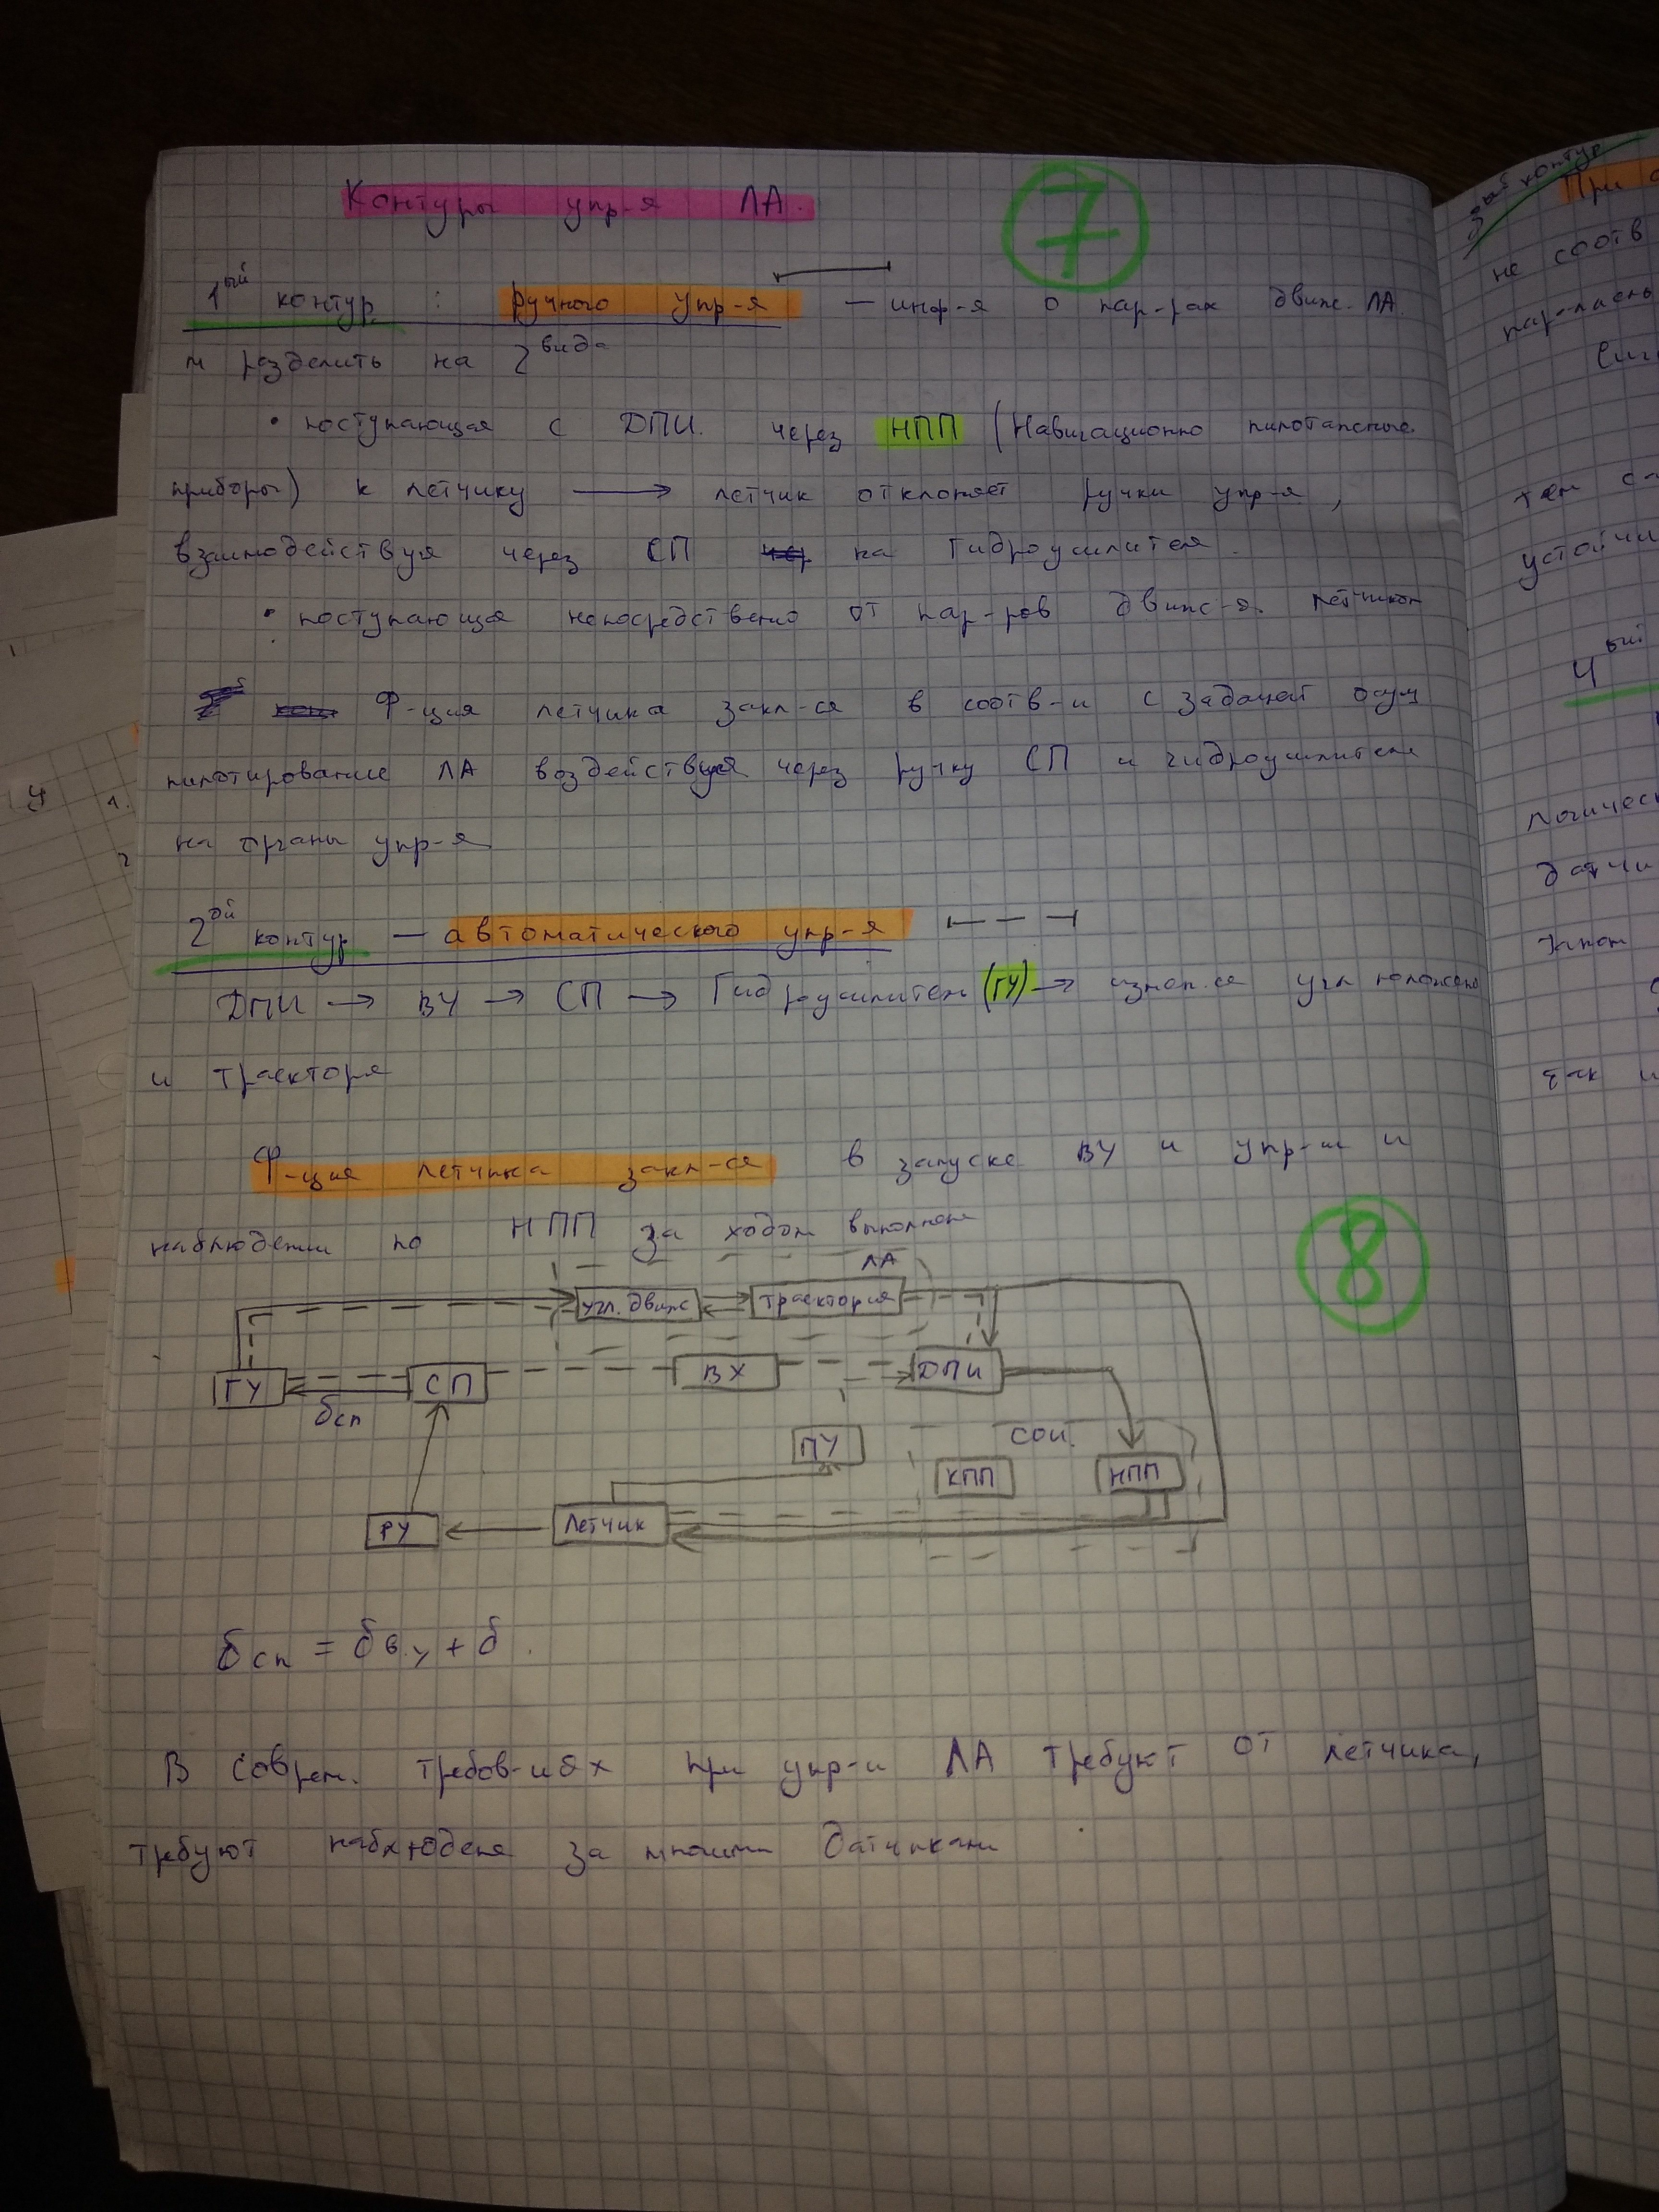 Контуры упр-я ЛА.
7
1ый контур : ручного упр-я — инф-я о пар-рах движ. ЛА.
м разделить на 2 вида
• поступающая с ДПИ. через НПП (Навигационно пилотажные
приборы) к летчику → летчик отклоняет ручки упр-я,
взаимодействуя через СП на Гидроусилителя.
• поступающая непосредствено от пар-ров движ-я. летчиком
Ф-ция летчика закл-ся в соотв-и с задачей осущ
пилотирование ЛА воздействуя через ручку СП и гидроусилители
на органы упр-я
2ой контур — автоматического упр-я
ДПИ → ВУ → СП → Гидроусилители (ГУ) → измен.ся угл положено
и траекторя
Ф-ция летчика закл-ся в запуске ВУ и упр-и и
наблюдении по НПП за ходом выполнене
8
ЛА
угл. движ
траектория
ГУ
СП
ВХ
ДПИ
δсп
ПУ
СОИ.
КПП
НПП
РУ
Летчик
δсп = δв.у + δ.
В соврем. требов-иях при упр-и ЛА требуют от летчика,
требуют наблюденя за многими датчиками
3ий контур
При
не соотв
устойчи
4ый
логичес
датчи
так и